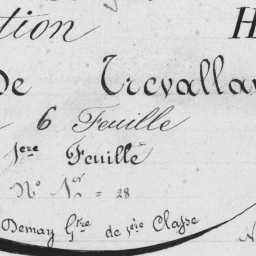 tion H
De Trevallan
6 Feuille
1ere Feuille
N° 1er = 28
Demay Gtre de 1ere Classe